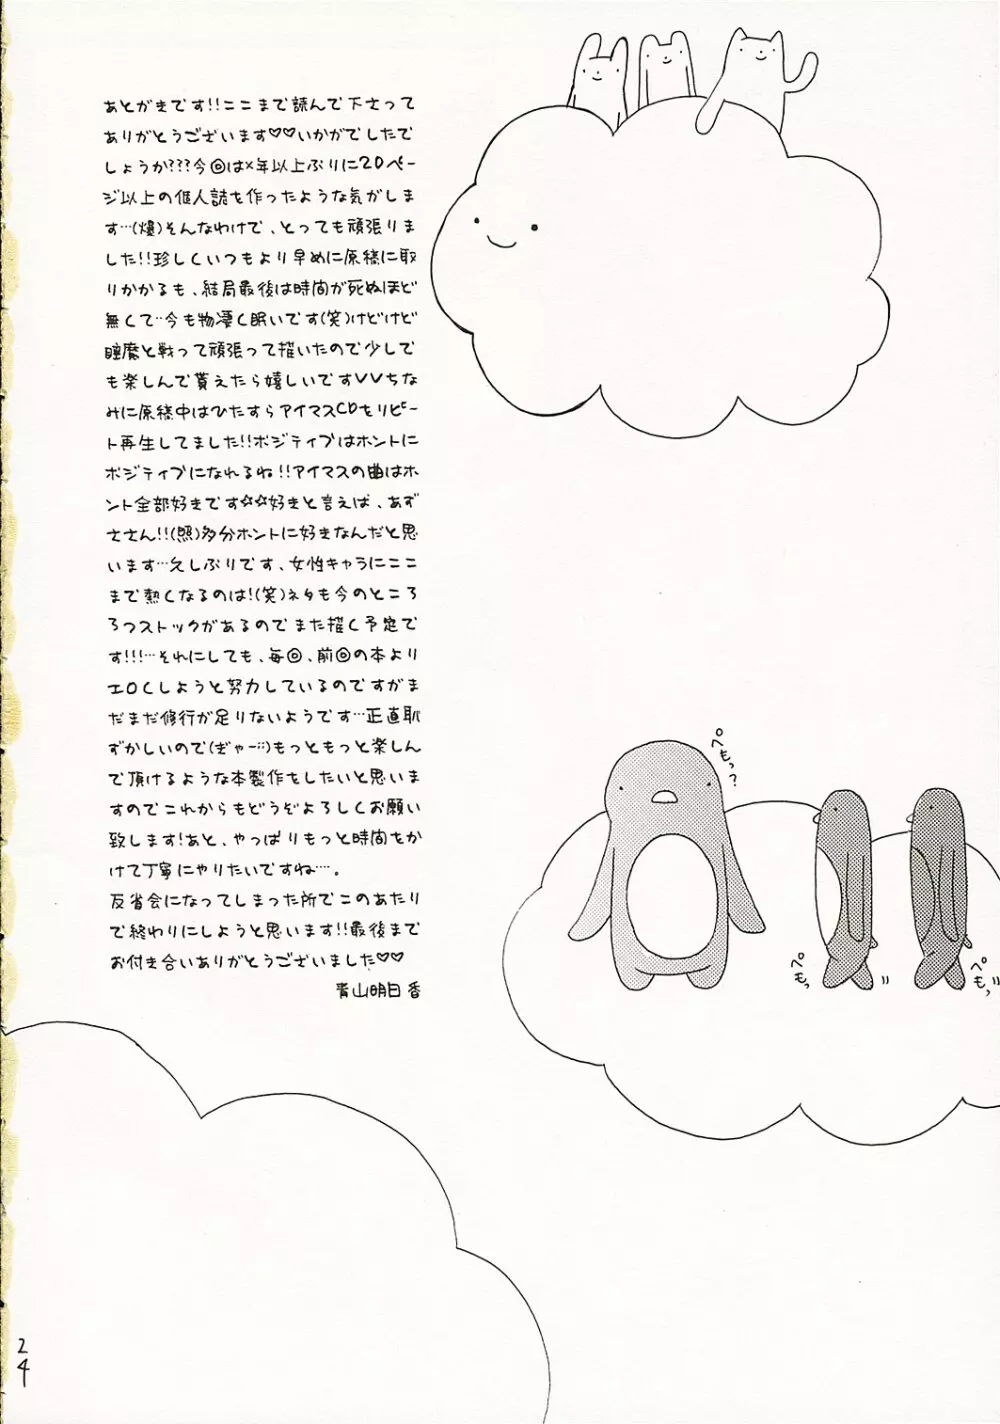 あとがきです!!ここまで読んで下さって
ありがとうございます♡♡いかがでしたで
しょうか???今回は×年以上ぶりに20ペー
ジ以上の個人誌を作ったような気がしま
す…(爆)そんなわけで、とっても頑張りま
した!!珍しくいつもより早めに原稿に取
りかかるも、結局最後は時間が死ぬほど
無くて…今も物凄く眠いです(笑)けどけど
睡魔と戦って頑張って描いたので少しで
も楽しんで貰えたら嬉しいですVVちな
みに原稿中はひたすらアイマスCDをリピー
ト再生してました!!ポジティブはホントに
ポジティブになれるね!!アイマスの曲はホ
ント全部好きです☆☆好きと言えば、あず
ささん!!(照)多分ホントに好きなんだと思
います…久しぶりです、女性キャラにここ
まで熱くなるのは!(笑)ネタも今のところ
3つストックがあるのでまた描く予定で
す!!!…それにしても、毎回、前回の本より
エロくしようと努力しているのですがま
だまだ修行が足りないようです…正直恥
ずかしいので(ぎゃー…)もっともっと楽しん
で頂けるような本製作をしたいと思いま
すのでこれからもどうぞよろしくお願い
致します!あと、やっぱりもっと時間をか
けて丁寧にやりたいですね…。
反省会になってしまった所でこのあたり
で終わりにしようと思います!!最後まで
お付き合いありがとうございました♡♡
青山明日香
ペもっ?
ペもっ
ペもっ
24